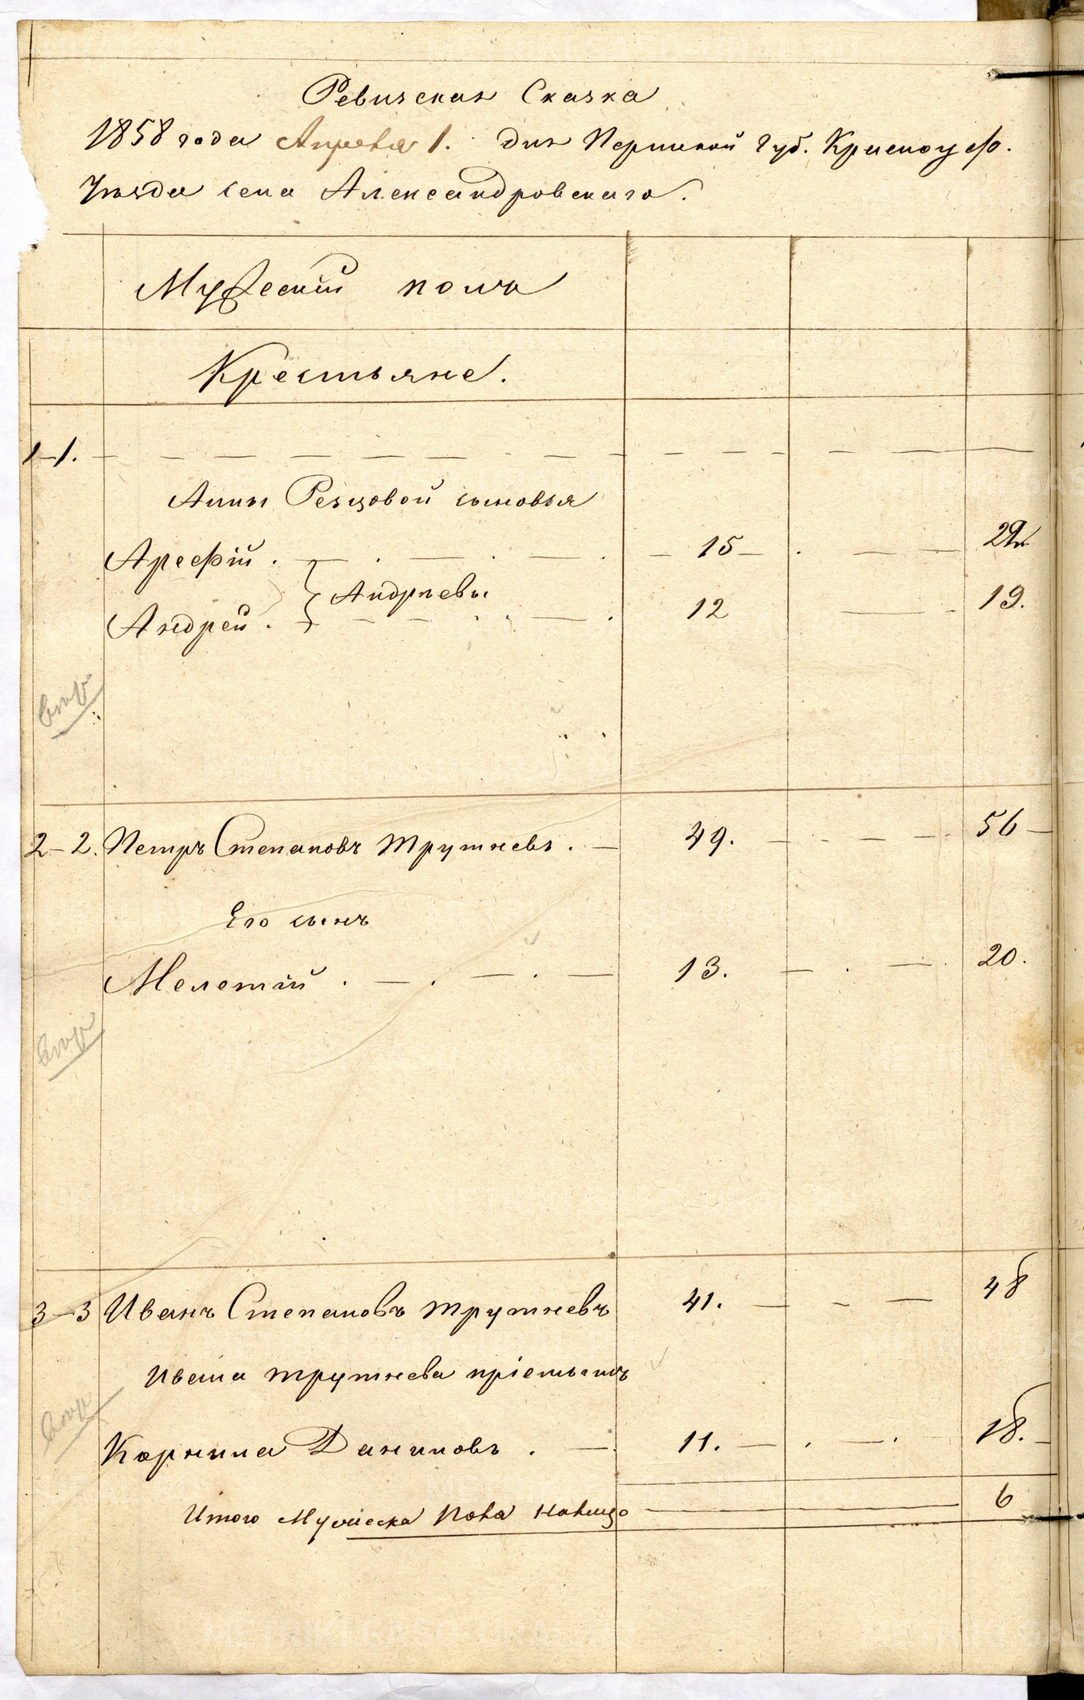 Ревизская Сказка
1858 года Апреля 1. дня Пермской Губ. Красноуф.
Уѣзда села Александровскаго.
Мужескій полъ
Крестьяне.
1–1.
Анны Резцовой сыновья
Арефій. 15
Андреевы
Андрей. 12 19.
2–2. Петръ Степановъ Трутневъ. 49. 56
Его сынъ
Мелетій. 13. 20.
3–3 Иванъ Степановъ Трутневъ 41. 48
Ивана Трутнева пріемышъ
Корнила Даниловъ. 11. 18.
Итого Мужеска Пола налицо 6